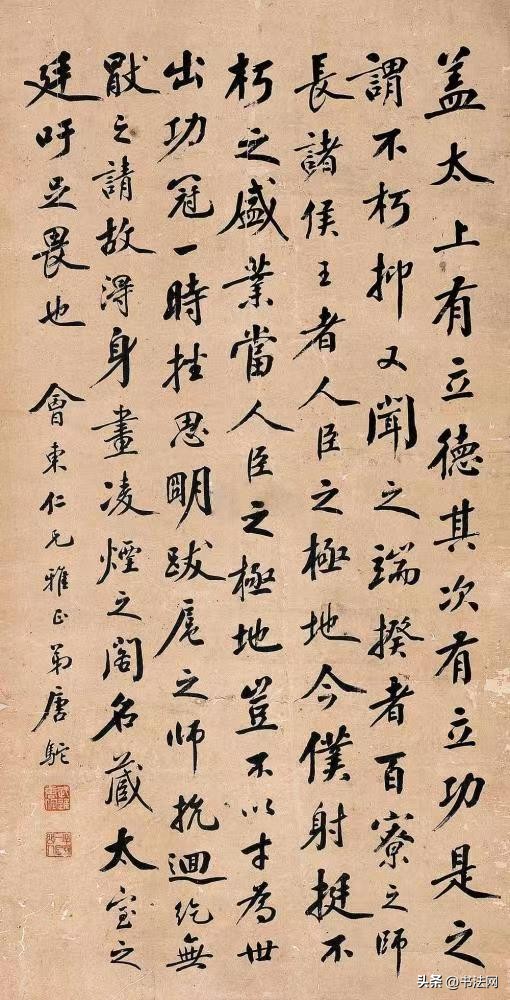 盖太上有立德其次有立功是之
謂不朽抑又聞之端揆者百寮之師
長諸侯王者人臣之極地今僕射挺不
朽之盛業當人臣之極地豈不以才為世
出功冠一時挫思明跋扈之師抗迴紇無
猒之請故得身畫凌煙之閣名藏太室之
廷吁足畏也 會東仁兄雅正弟唐駝
头条 @书法网